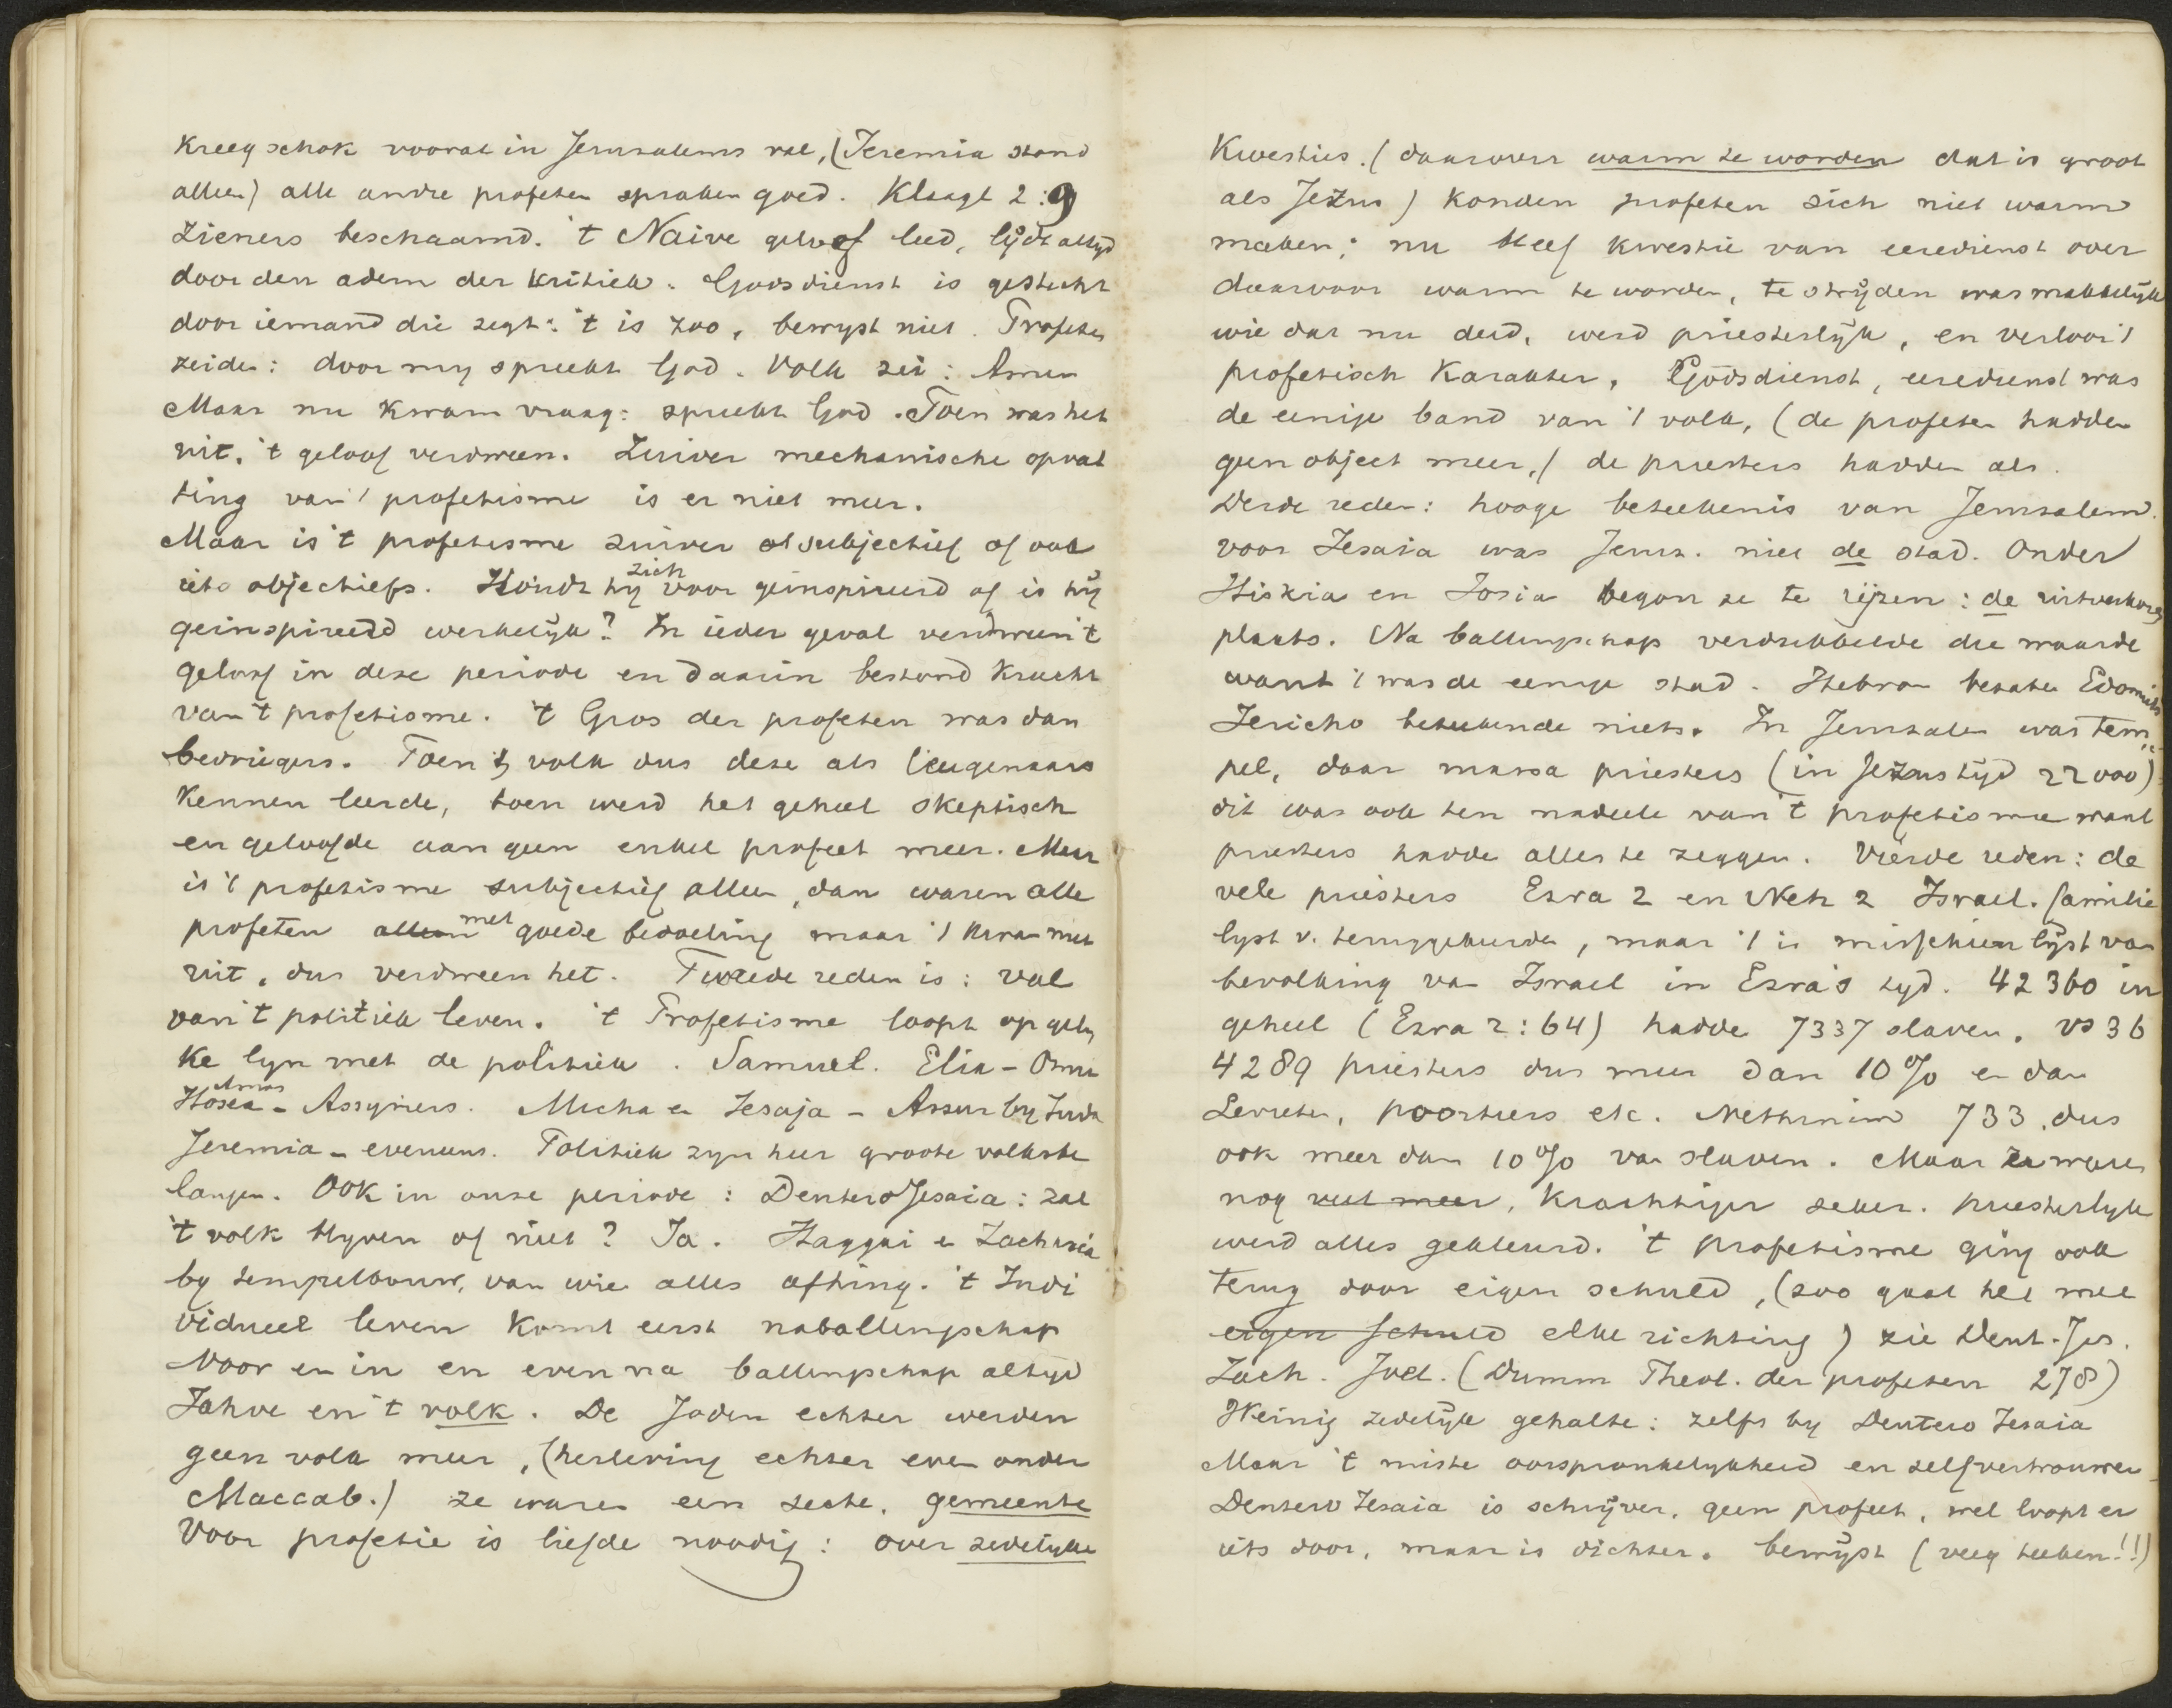 kreeg schok vooral in Jerusalems val, (Jeremia stond
alleen) alle andre profeten spraken goed. Klaagl 2:9
Zieners beschaamd. 't Naive geloof leed, lijdt altijd
door den adem der kritiek. Godsdienst is gesticht
door iemand die zegt: 't is zoo, bewyst niet. Profeten
zeiden: door my spreekt God. Volk zei: Amen
Maar nu kwam vraag: spreekt God. Toen was het
uit, 't geloof verdween. Zuiver mechanische opvat
ting van 't profetisme is er niet meer.
Maar is 't profetisme zuiver subjectief of ook
iets objectiefs. Houdt hy zich voor geinspireerd of is hij
geinspireerd werkelijk? In ieder geval verdween 't
geloof in deze periode en daarin bestond kracht
van 't profetisme. 't Gros der profeten was dan
bedriegers. Toen 't volk dus deze als leugenaars
kennen leerde, toen werd het geheel skeptisch
en geloofde aan geen enkel profeet meer. Maar
is 't profetisme subjectief alleen, dan waren alle
profeten alleen met goede bedoeling maar 't kwam niet
uit, dus verdween het. Tweede reden is: val
van 't politiek leven. 't Profetisme loopt op gely
ke lyn met de politiek. Samuel. Elia - Omri
Amos
Hosea - Assyriers. Micha en Jesaja - Assur by Juda
Jeremia - eveneens. Politiek zyn hier groote volksbe
langen. Ook in onze periode: DeuteroJesaia: zal
't volk blyven of niet? Ja. Haggai en Zacharia
by tempelbouw, van wie alles afhing. 't Indi
vidueel leven komt eerst naballingschap
Voor en in en even na ballingschap altijd
Jahve en 't volk. De Joden echter werden
geen volk meer, (herleving echter even onder
Maccab.) ze waren een secte, gemeente
Voor profetie is liefde noodig: over zedelijke
Kwesties. (daarover warm te worden dat is groot
als Jezus) konden profeten zich niet warm
maken; nu bleef kwestie van eeredienst over
daarvoor warm te worden, te strijden was makkelijk
wie dat nu deed, werd priesterlijk, en verloor 't
profetisch karakter. Godsdienst, eeredienst was
de eenige band van 't volk, (de profeten hadden
geen object meer,) de priesters hadden als.
Derde reden: hooge beteekenis van Jerusalem.
voor Jesaia was Jerus. niet de stad. Onder
Hiskia en Josia begon ze te rijzen: de uitverkoren
plaats. Na ballingschap verdubbelde die waarde
want 't was de eenige stad. Hebron bezaten Edomiets
Jericho beteekende niets. In Jerusalem was tem
pel, daar massa priesters (in Jezus tijd 22000)
dit was ook ten nadeele van 't profetisme want
priesters hadden alles te zeggen. Vierde reden: de
vele priesters Ezra 2 en Neh 2 Israel. familie
lyst v. teruggekeerden, maar 't is misschien lijst van
bevolking van Israel in Ezra's tyd. 42360 in
geheel (Ezra 2:64) hadde 7337 slaven. vs 36
4289 priesters dus meer dan 10% en dan
Levieten, poortiers etc. Nethinim 733, dus
ook meer dan 10% van slaven. Maar ze waren
nog veel meer, krachtiger zeker. priesterlyk
werd alles gekleurd. 't profetisme ging ook
terug door eigen schuld, (zoo gaat het met
eigen schuld elke richting) zie Deut-Jes.
Zach. Joel. (Duhm Theol. der profeten 278)
Weinig zedelijk gehalte: zelfs by Deutero Jesaia
Maar 't miste oorspronkelykheid en zelfvertrouwen
Deutero Jesaia is schrijver, geen profeet, wel loopt er
iets door, maar is dichter. bewijst (veeg teeken!!)